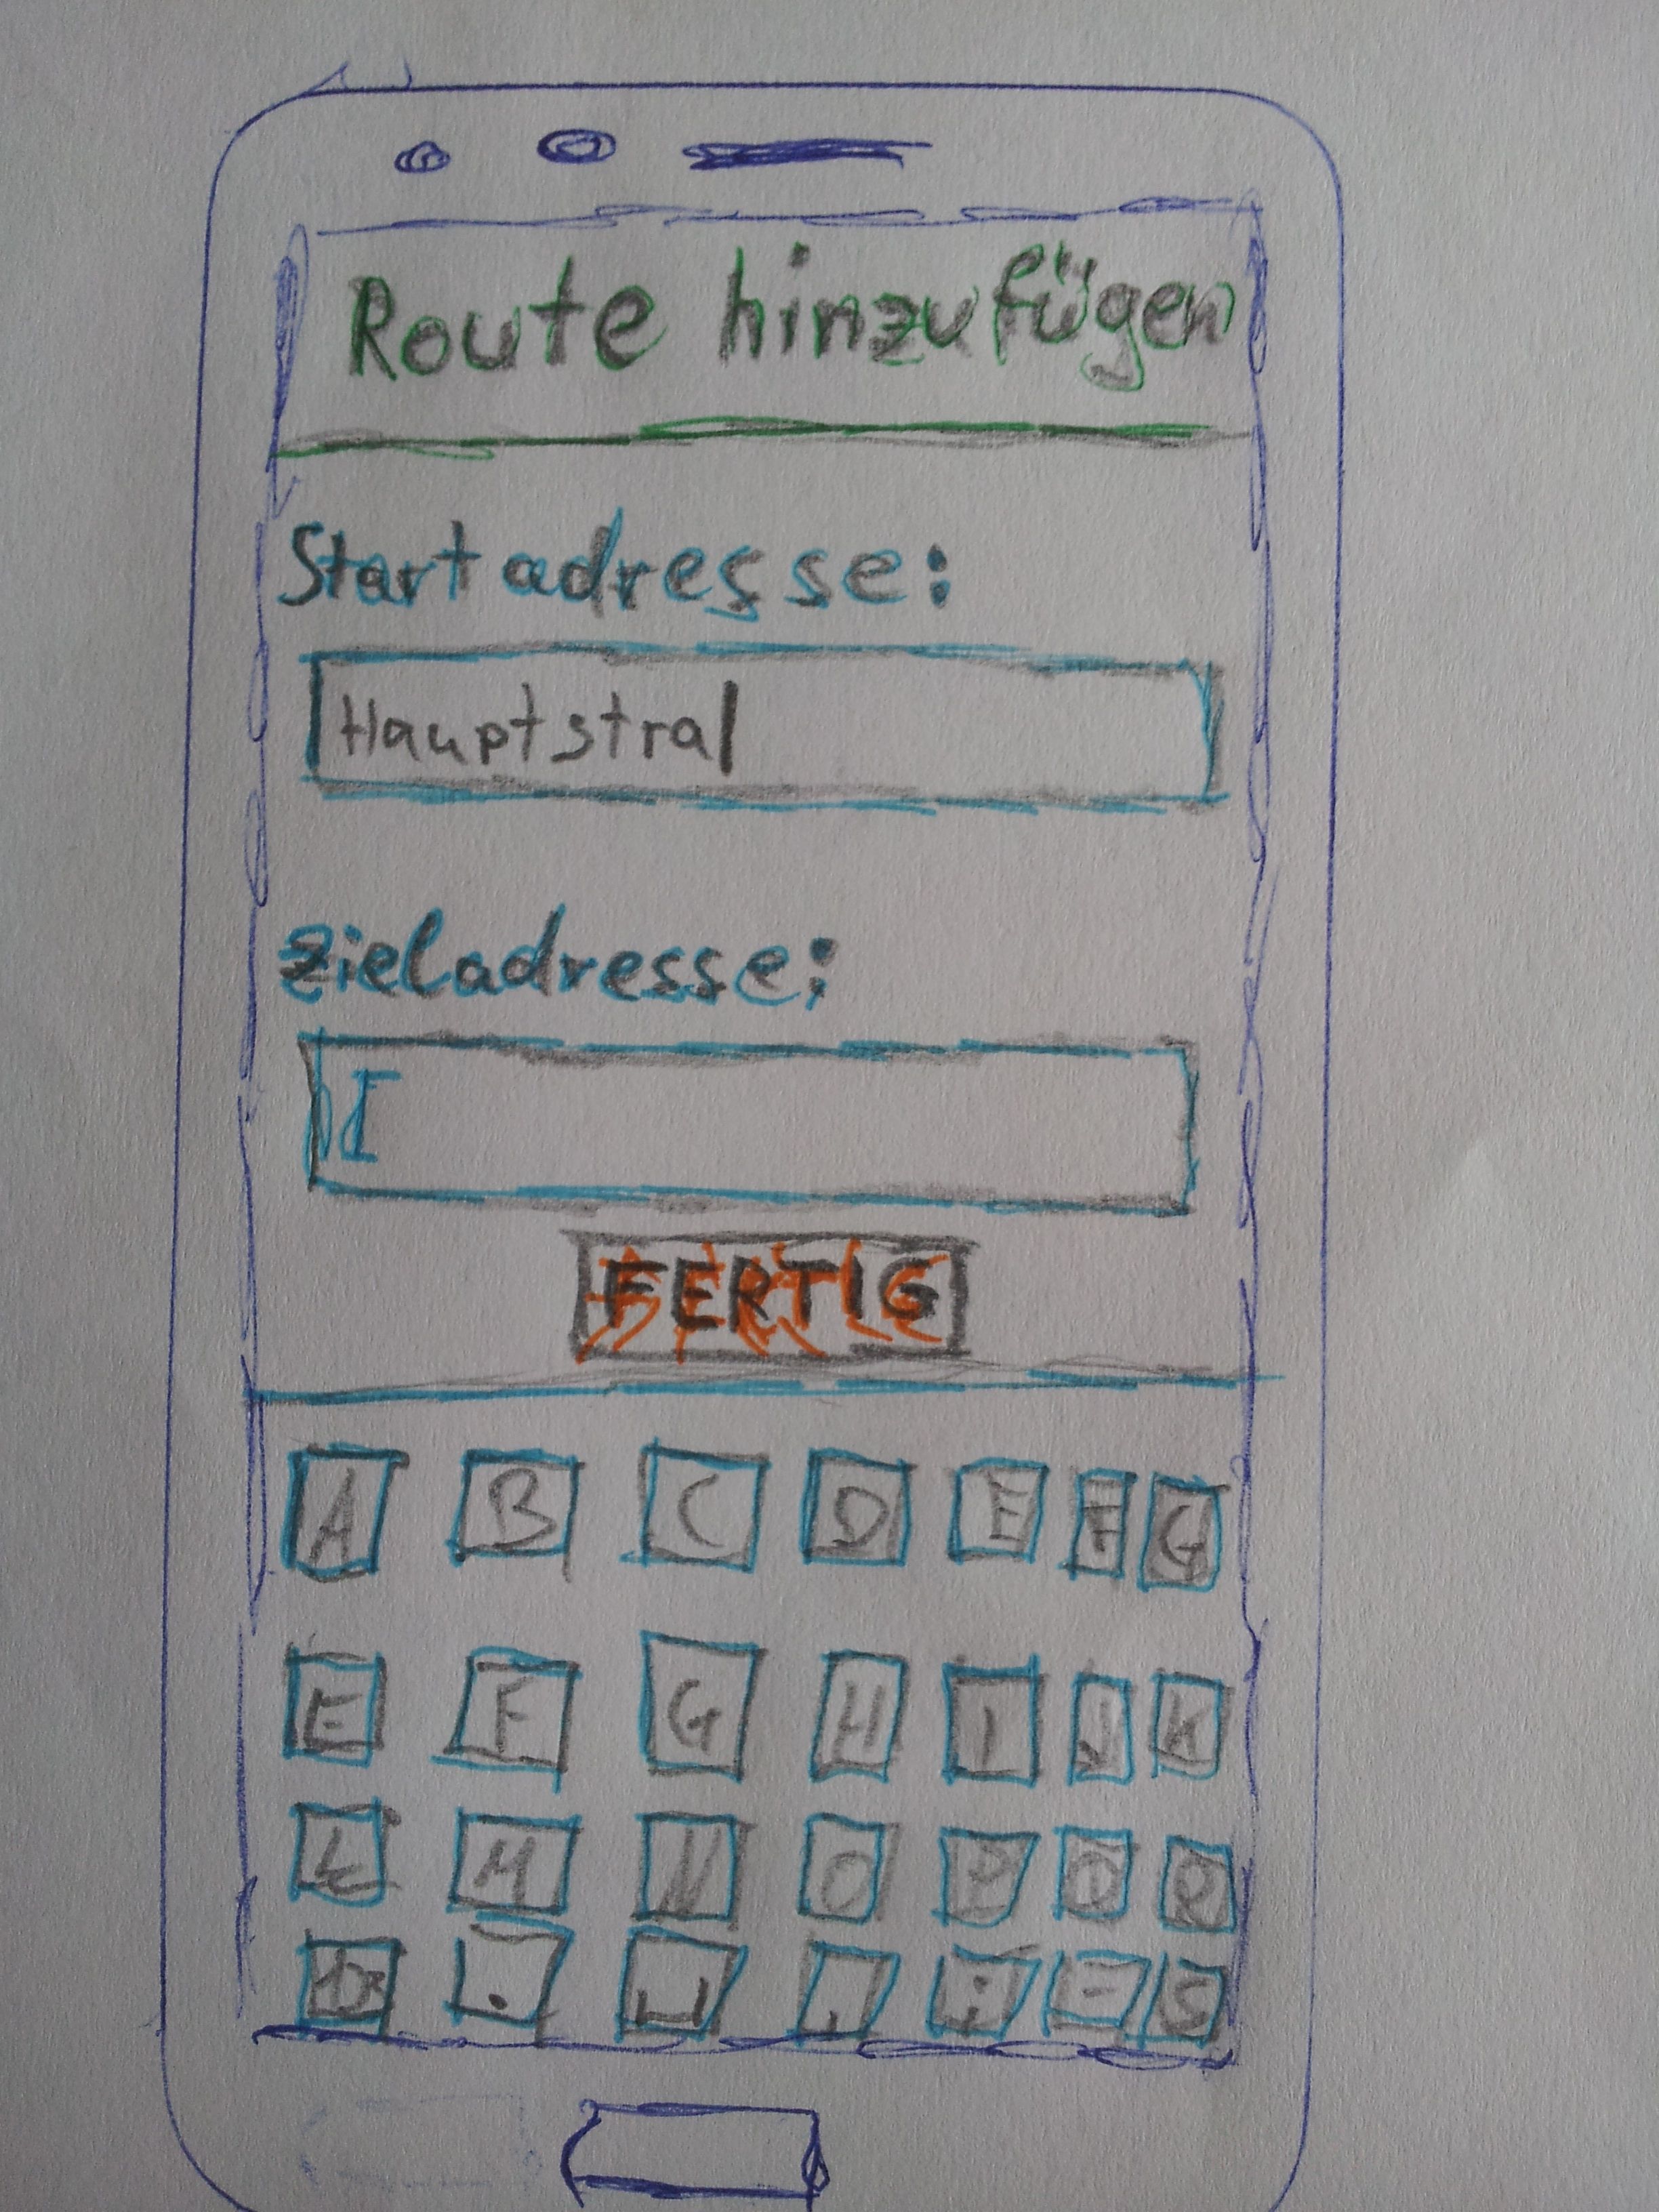 Route hinzufügen
Startadresse:
Hauptstra|
Zieladresse:
FERTIG
A B C D E F G
E F G H I J K
L M N O P Q R
. ⎵ , ; = S